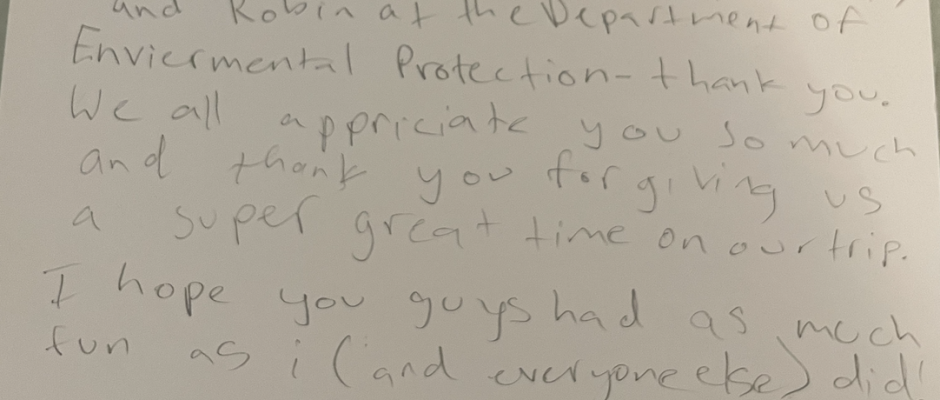 and Robin at the Department of
Enviermental Protection- thank you.
We all appriciate you so much
and thank you for giving us
a super great time on our trip.
I hope you guys had as much
fun as i (and everyone else) did!